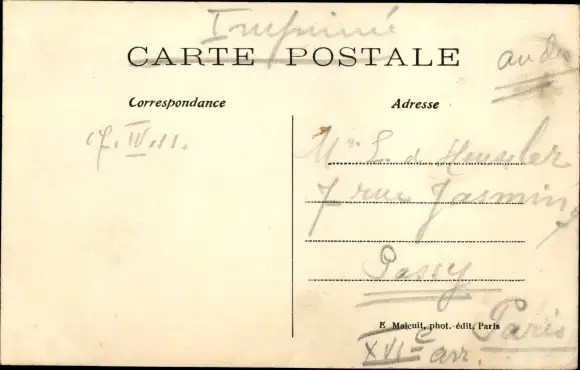 Imprimé
CARTE POSTALE
Correspondance
Adresse
17.IV.11.
Mr. L. de
7 rue Jasmin
Passy
E Malcuit, phot.-édit, Paris
Paris
XVIe arr.